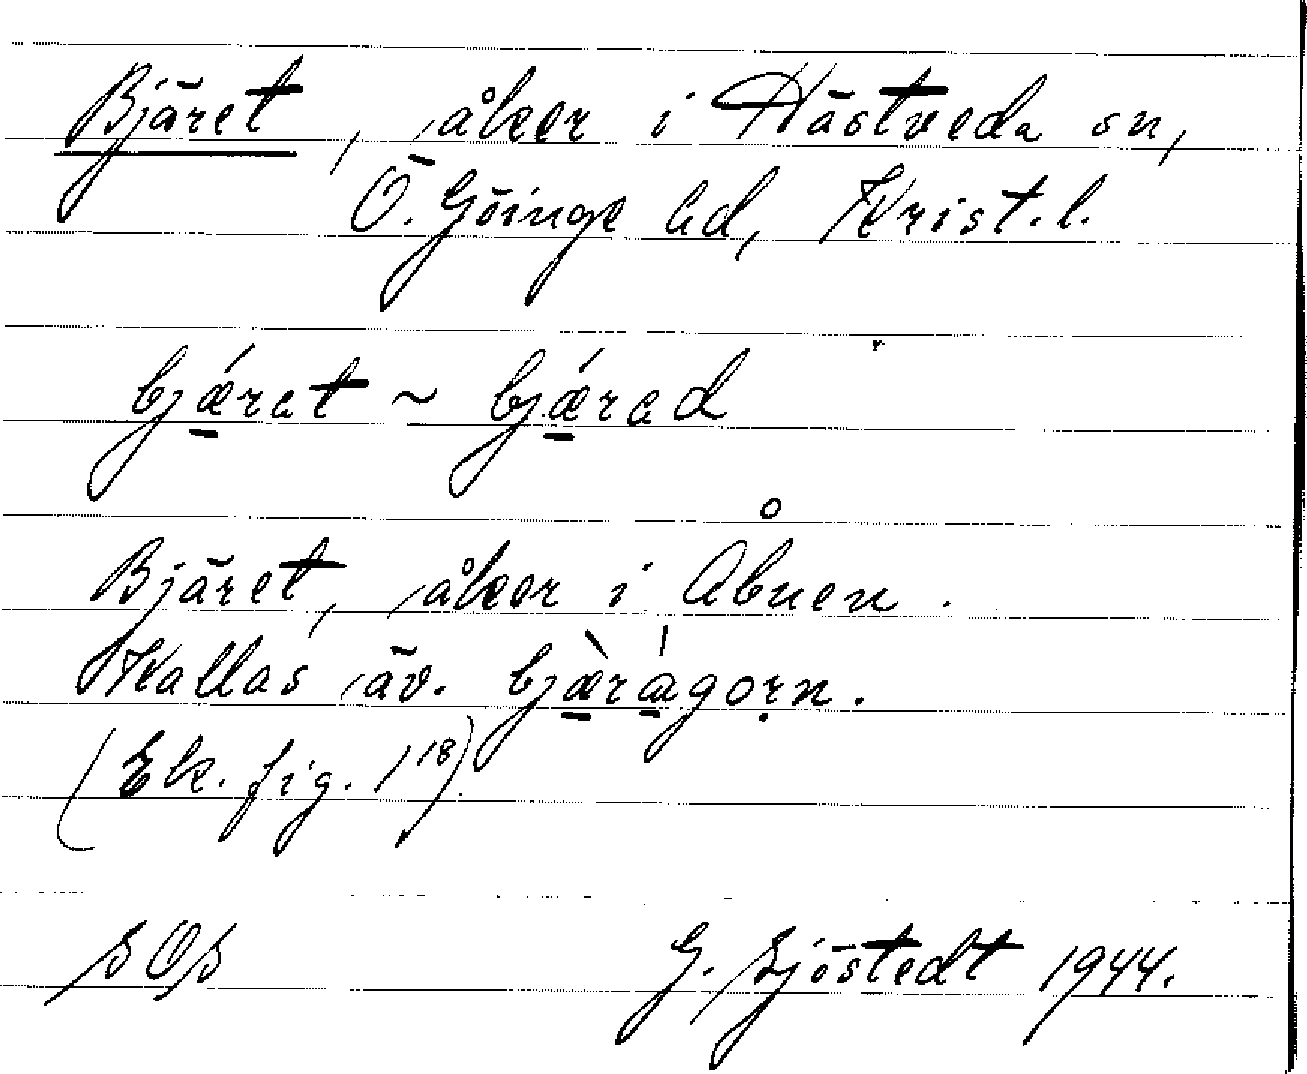 Bjäret, åker i Hästveda sn,
Ö. Göinge hd, Krist. l.
bjǽ̱rat ~ bjǽ̱rad
Bjäret, åker i Åbuen.
Kallas äv. bjæ̱̀ra̱̍gọrn.
(Ek. fig. 1¹⁸)
SOS G. Sjöstedt 1944.